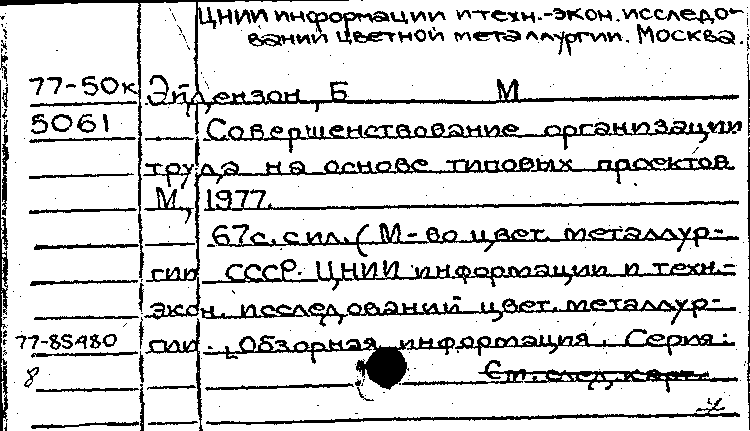 ЦНИИ информации и техн.-экон. исследо-
ваний цветной металлургии. Москва.
77-50к Эйдензон, Б М
5061 Совершенствование организации
труда на основе типовых проектов
М., 1977.
67с. с ил. (М-во цвет. металлур-
гии СССР. ЦНИИ информации и техн.-
экон. исследований цвет. металлур-
77-85480 гии. Обзорная информация. Серия:
8 См. след. карт.